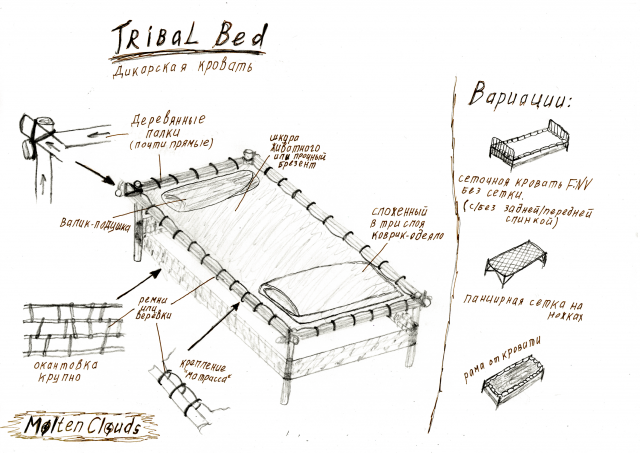 Tribal Bed
Дикарская кровать
Деревянные
палки
(почти прямые)
шкура
животного
или прочный
брезент
валик-подушка
сложенный
в три слоя
коврик-одеяло
ремни
или
верёвки
окантовка
крупно
крепление
"матрасса"
Molten Clouds
Вариации:
сеточная кровать F:NV
без сетки.
(с/без задней/передней
спинкой)
панцирная сетка на
ножках
рама от кровати